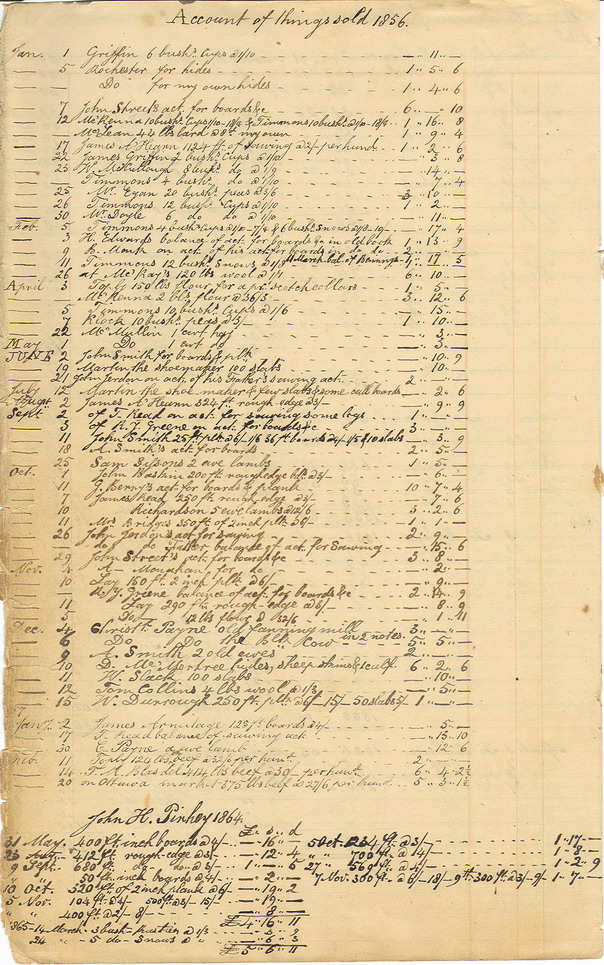 Account of things sold 1856.
Jan. 1 Griffin 6 bushs. Cups @ 1/10 — " 11 " —
5 Rochester for hides 1 " 5 " 6
— Do for my own hides 1 " 4 " 6
7 John Street's act. for boards &c 6 " — " 10
12 McKenna 10 bushs. Cups 1/10 - 18/4 & Timmons 10 bushs. @ 1/10 - 18/4 1 " 16 " 8
— McLean 44 lbs lard @ 8d my own 1 " 9 " 4
17 James A. Hearn 1124 ft of sawing @ 2/- per hund. 1 " 2 " 6
22 James Griffin 2 bushs. Cups @ 1/10 — " 3 " 8
23 W. McCullough 8 bushs. do @ 1/9 — " 14 " —
— Timmons 4 bushs. do @ 1/10 — " 7 " 4
25 Mr. Egan 20 bushs. peas @ 3/6 3 " 10 " —
26 Timmons 12 bushs. Cups @ 1/10 1 " 2 " —
30 Mr. Doyle 6 do do @ 1/10 — " 11 " —
Feb. 5 Timmons 4 bushs. Cups @ 1/10 - 7/4 & 6 bushs. Snows — " 17 " 4
3 H. Edwards balance of act. for boards &c in old book 1 " 13 " 9
9 Monk on act. of his act. for boards in
11 Timmons 12 bushs. Snows " 17 " 5
26 at McKay's 120 lbs wool @ 1/1 6 " 10 " —
April 3 Tofly 150 lbs flour for a pr. Scotch collars 1 " 5 " —
— McKenna 2 bls flour @ 36/3 3 " 12 " 6
5 Timmons 10 bushs. Cups @ 1/6 — " 15 " —
7 Klock 10 bushs. peas @ 3/- 1 " 10 " —
22 McMullin 1 cwt hay — " 3 " —
May 1 Do 1 cwt do — " 3 " —
JUNE 2 John Smith for boards & plk — " 10 " 9
19 Martin the shoemaker 100 slabs — " 10 " —
21 John Jerdon on act. of his Father's sawing act. 2 " — " —
July 12 Martin the shoe maker & few slabs & some cull boards — " 2 " 6
August 2 James A Hearn 324 ft rough edge @ 3/- — " 9 " 9
Sept. 2 of T. Read on act. for sawing some logs 1 " — " —
3 of R. J. Greene on act. for boards &c 3 " — " —
11 John Smith 25 ft plk @ 6/- 16 56 ft boards @ 4/- 15 & 10 slabs — " 3 " 9
18 A. Smith's act. for boards 2 " 5 " —
25 Sam Sissons 2 ewe lambs 1 " 5 " —
Oct. 1 John Haskin 200 ft rough edge bds @ 3/- — " 6 " —
11 J. Berry's act for boards & plank 10 " 7 " 4
7 James Read 250 ft rough edge @ 3/- — " 7 " 6
10 Richardson 5 ewe lambs @ 12/6 3 " 2 " 6
11 Mr. Bridges 350 ft of 2 inch plk @ 6/- 1 " 1 " —
26 John Jordon's act for sawing 2 " 9 " —
— do do Father balance of act. for Sawing — " 15 " 6
29 John Street's act. for boards &c 3 " 8 " —
Nov. 4 A- Monahan, for do — " 2 " —
10 Lay 150 ft 2 inch plk @ 6/- — " 9 " —
— R. J. Greene balance of act. for boards &c 2 " 14 " 9
11 Lay 290 ft rough-edge @ 3/- — " 8 " 9
5 12 lbs flour @ — " 1 " 11
Dec. 4 Christr. Payne old fanning mill 3 " — " —
6 Do Do the Ell Cow in 2 notes. 5 " 5 " —
9 A. Smith 2 old ewes 2 " — " —
10 D. McMortree hides, sheep skins & 1 calf 6 " 2 " 6
11 W. Slack 100 slabs — " 10 " —
12 Tom Collins 4 lbs wool @ 1/3 — " 5 " —
15 W. Durrough 250 ft plk @ 6/- 15/- 50 slabs 5/- 1 " — " —
Jany. 2 James Armitage 125 ft boards @ 4/- — " 5 " —
17 T. Read balance of sawing act — " 15 " 10
30 C. Payne a ewe lamb — " 12 " 6
Feb. 11 Tofly 124 lbs beef @ 32/6 per hunt. 2 " — " —
14 T. M. Blasdel 414 lbs beef @ 30/- per hunt. 6 " 4 " 2½
20 on Ottawa market 375 lbs beef @ 27/6 per hunt. 5 " 3 " 1½
John H. Pinhey 1864.
£ " s " d
31 May. 400 ft inch boards @ 4/- — " 16 " — 5 Oct. 234 ft @ 3/- 1 " 17 " —
23 412 ft rough-edge @ 3/- — " 12 " 4 " 700 ft @ 4/- " 8 " —
9 Sept. 680 ft do @ 3/- 1 " — " 5 27 " 569 ft @ 4/- 1 " 2 " 9
" " 50 ft inch boards @ 4/- — " 2 " — 7 Nov. 300 ft @ 6/- 18/- 9th. 300 ft @ 3/- 9/- 1 " 7 " —
10 Oct. 320 ft of 2 inch plank @ 6/- — " 19 " 2
5 Nov. 104 ft @ 4/- 500 ft @ 3/- 15/- — " 19 " —
" " 400 ft @ 2/- 8/- — " 8 " —
£ 4 " 16 " 11
1865-14 March - 3 bush. @ 1/3
24 " - 5 do - Snows @ " — " 6 " 3
£ 5 " 6 " 11